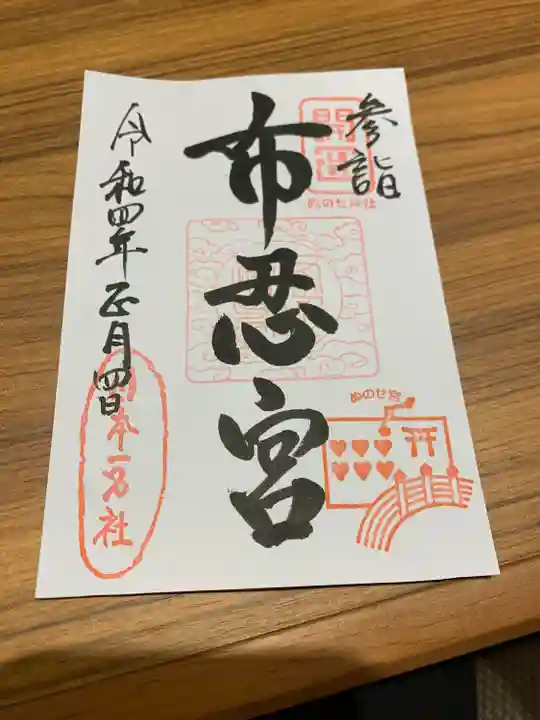 参詣
開運
ぬのせ神社
布忍宮
ぬのせ宮
令和四年正月四日
日本一名社